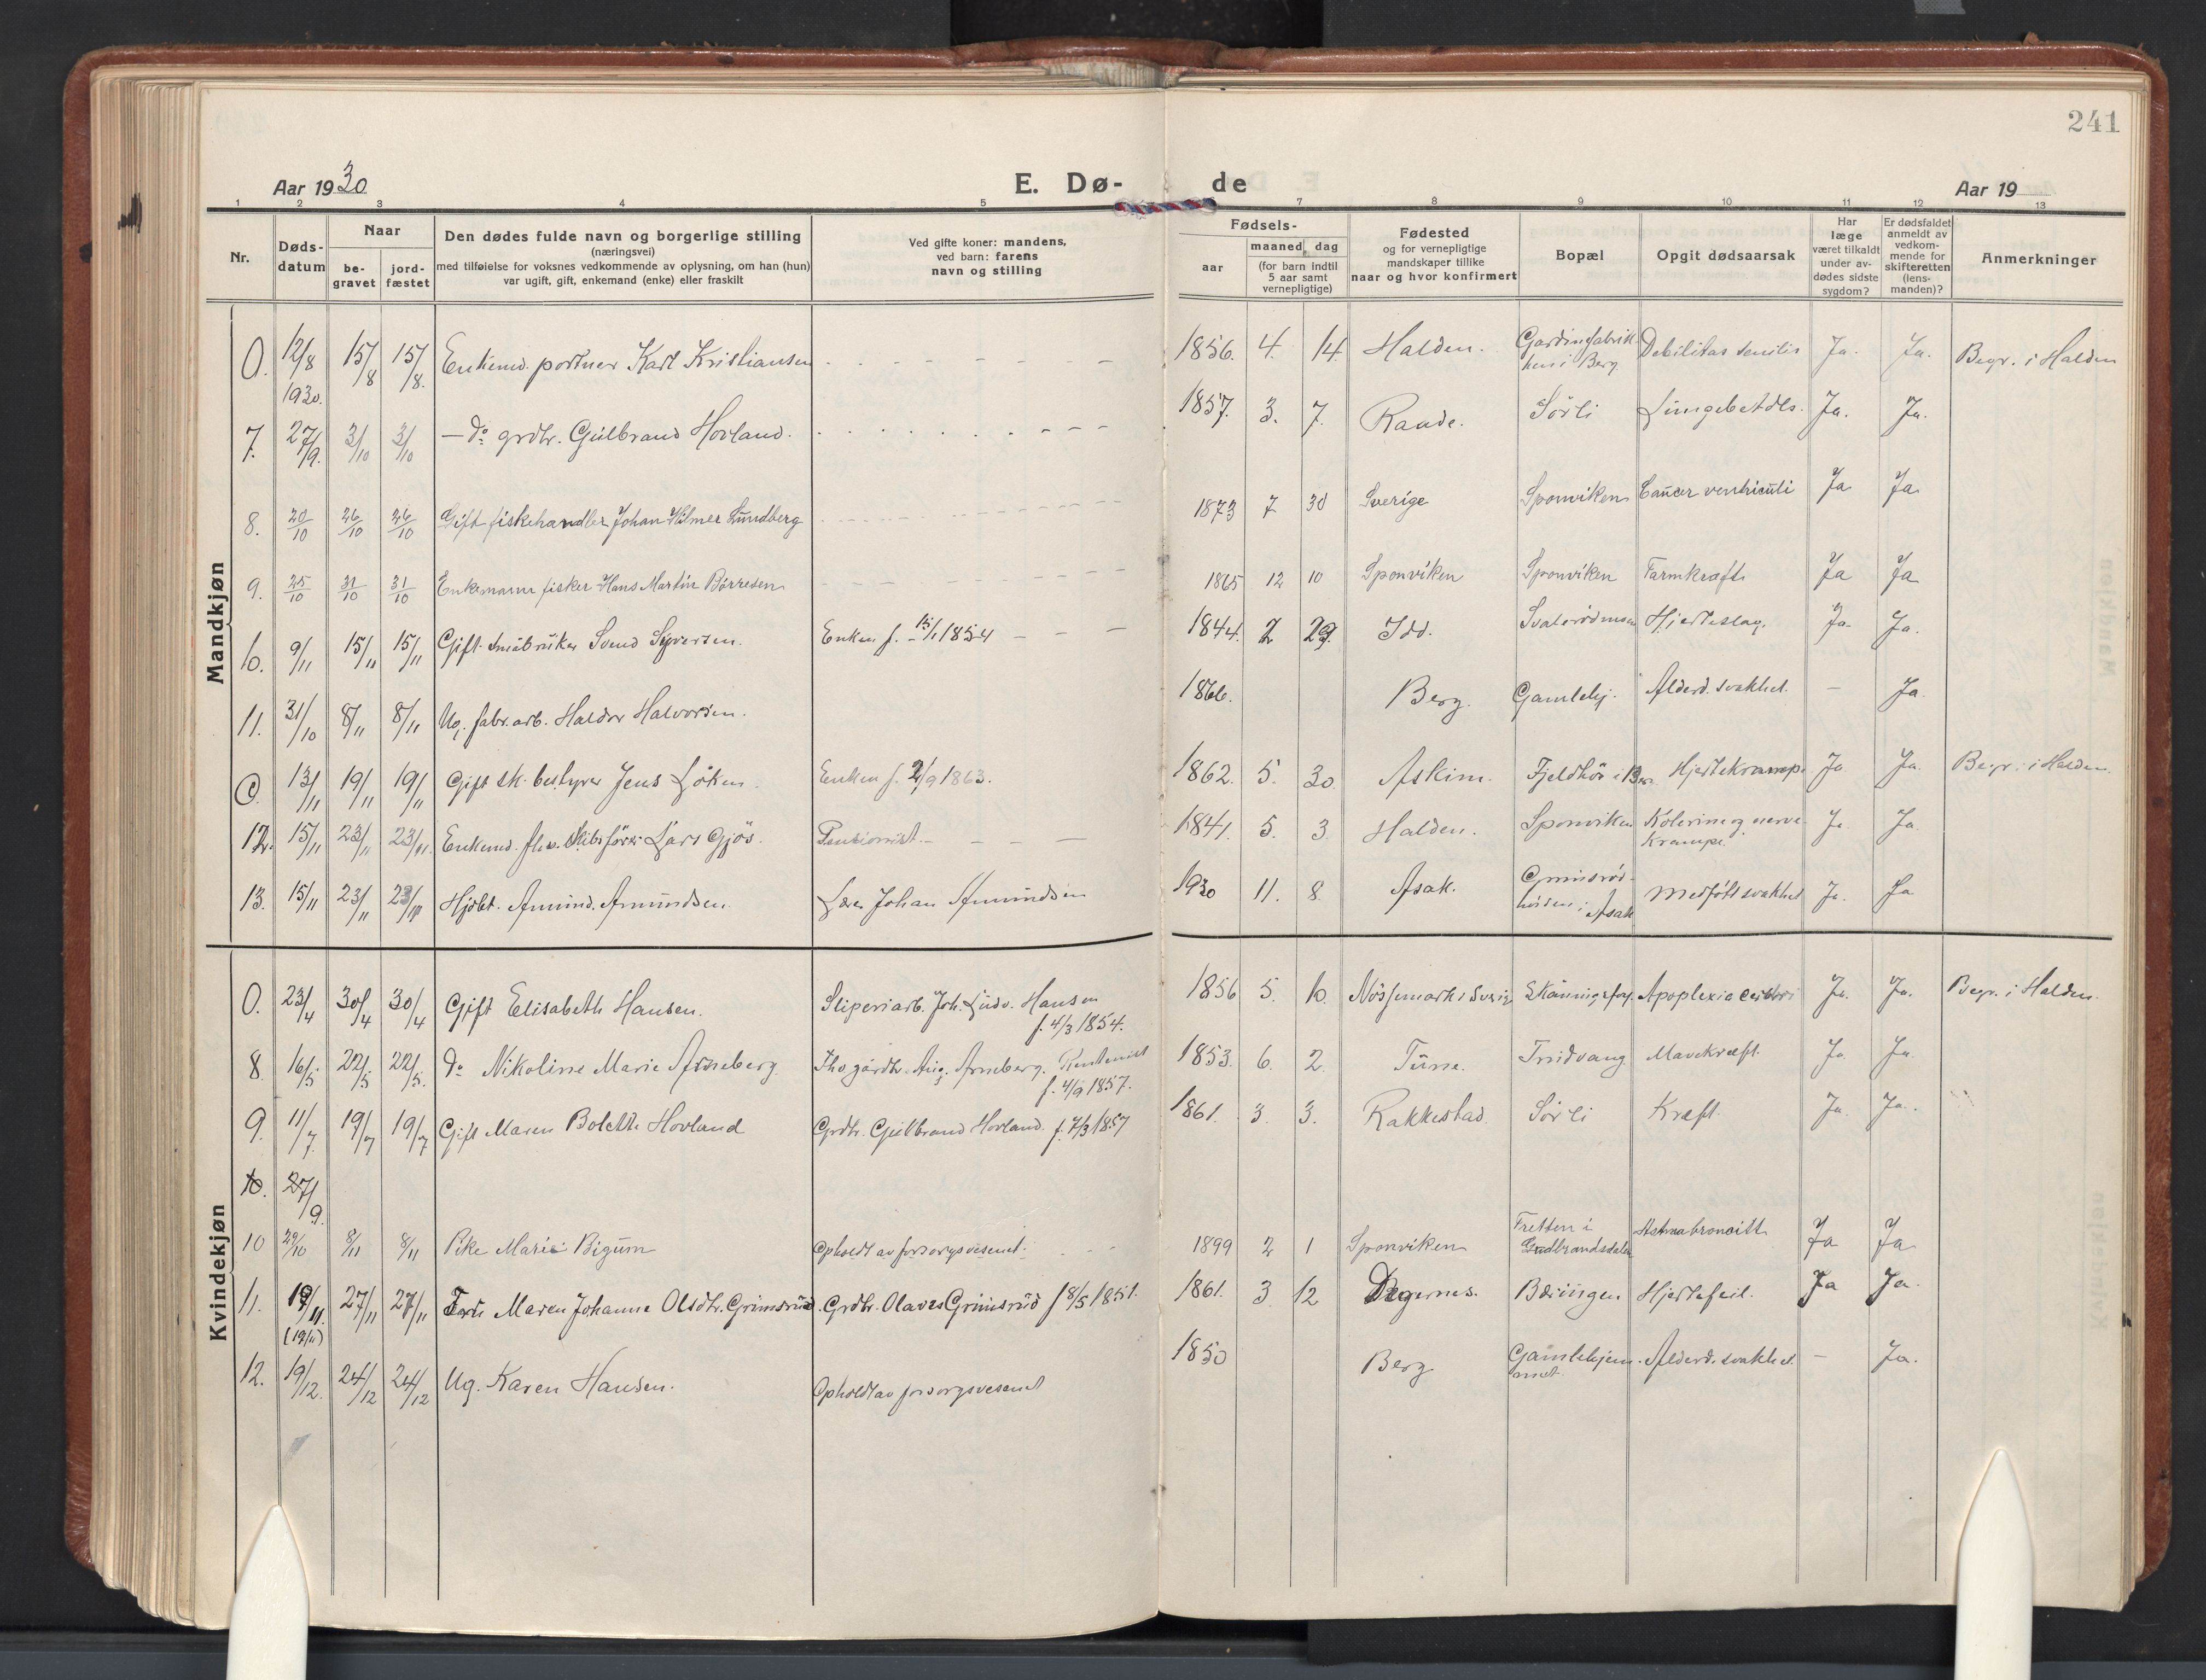 241
Aar 1930
E. Dø-
de
Aar 19
1 2 3 4 5 7 8 9 10 11 12 13
Nr.
Døds-
datum
Naar
be-
gravet
jord-
fæstet
Den dødes fulde navn og borgerlige stilling
(næringsvei)
med tilføielse for voksnes vedkommende av oplysning, om han (hun)
var ugift, gift, enkemand (enke) eller fraskilt
Ved gifte koner: mandens,
ved barn: farens
navn og stilling
Fødsels-
aar
maaned dag
(for barn indtil
5 aar samt
vernepligtige)
Fødested
og for vernepligtige
mandskaper tillike
naar og hvor konfirmert
Bopæl
Opgit dødsaarsak
Har
læge
været tilkaldt
under av-
dødes sidste
sygdom?
Er dødsfaldet
anmeldt av
vedkom-
mende for
skifteretten
(lens-
manden)?
Anmerkninger
Mandkjøn
0. 12/8 1930. 15/8 15/8. Enkemd. portner Karl Kristiansen - - - - - 1856. 4. 14. Halden. Gardinfabrik
ken i Berg Debilitas senilis Ja. Ja. Begr. i Halden
7. 27/9. 3/10 3/10 — do grdbr. Gulbrand Hovland. - - - 1857. 3. 7. Raade. Sørli Lungebetdls. Ja. Ja.
8. 20/10 26/10 26/10 Gift fiskehandler Johan Hilmer Lundberg - - - 1873 7 30 Sverige Sponviken Cancer ventriculi Ja Ja
9. 25/10 31/10 31/10 Enkemann fisker Hans Martin Børresen - - - 1865 12 10 Sponviken Sponviken Tarmkræft Ja Ja
10. 9/11 15/11 15/11 Gift småbruker Svend Syversen. Enken f. 15/1 1854 - - - 1844. 2 29. Idd. Hjerteslag. Ja. Ja.
11. 31/10 8/11 8/11 Ug. fabr. arb. Haldor Halvorsen. 1866. Berg. Gamlehj. Alderd. svakhet. - Ja.
0. 13/11 19/11 19/11 Gift sk. bestyrer Jens Løken. Enken f. 2/9 1863. 1862. 5. 30 Askim. Hjertekrampe Ja Ja. Begr. i Halden.
12. 15/11 23/11 23/11. Enkemd. Skibsfører Lars Gjøs. Pensionist. - - - 1841. 5. 3 Halden. Sponviken Kolerine og nerve
krampe. Ja Ja
13. 15/11 23/11 23/11 Hjdbt. Amund Amundsen Johan Amundsen 1930 11. 8. Asak. i Asak Medfødt svakhet Ja. Ja
Kvindekjøn
0. 23/4 30/4 30/4 Gift Elisabeth Hansen. Sliperiarb. Joh. Ludv. Hansen
f. 4/3 1854. 1856 5. 10. Nössemark i Sverig Apoplexia cerebri Ja. Ja. Begr. i Halden.
8. 16/5 22/5 22/5. do Nikoline Marie Arneberg. Fhv gårdbr. Aug. Arneberg. Rentenist
f. 4/9 1857. 1853. 6. 2. Tune. Tridvang Mavekræft. Ja Ja
9. 11/7. 19/7 19/7 Gift Maren Bolette Hovland Grdbr. Gulbrand Hovland f. 7/3 1857 1861. 3. 3. Rakkestad Sørli Kræft. Ja. Ja.
10. 27/9.
10 29/10 8/11 8/11 Pike Marie Bigum Opholdt av forsorgsvesenet. - - 1899 2 1 Sponviken Tretten i
Gudbrandsdalen Astmabroncitt Ja Ja
11. 19/11. (19/11) 27/11 27/11 Fru Maren Johanne Olsdtr. Grimsrud Grdbr. Olaves Grimsrud f 8/5 1851. 1861. 3 12 Degernes. Bæringen Hjertefeil. Ja Ja.
12. 19/12. 24/12 24/12 Ug. Karen Hansen. Opholdt av forsorgsvesenet 1850 Berg Gamlehjem-
met. Alderd. svakhet. - Ja.